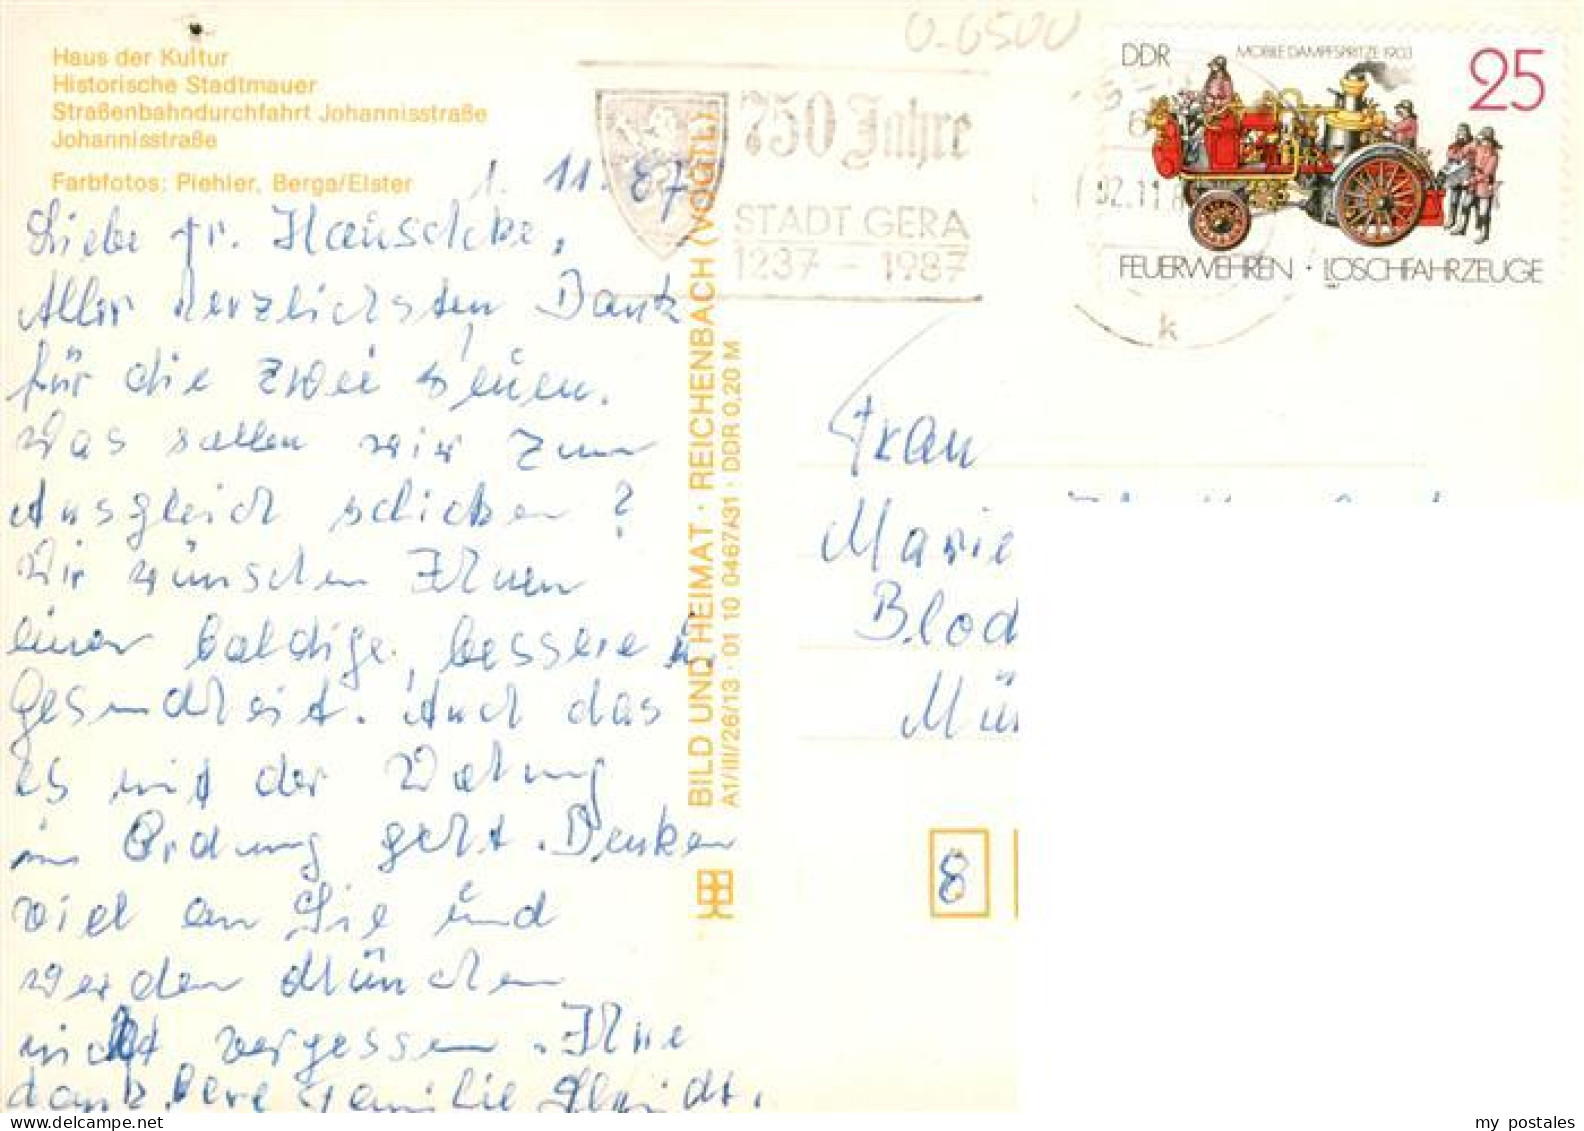 Haus der Kultur
Historische Stadtmauer
Straßenbahndurchfahrt Johannisstraße
Johannisstraße
Farbfotos: Piehler, Berga/Elster
1. 11. 87
Liebe Fr.
Aller herzlichsten Dank
für die zwei
Was sollen wir zum
Ausgleich schicken?
Wir wünschen Ihnen
einer baldige, bessere
Gesundheit. Auch das
es mit der
in Ordnung geht. Denken
viel an Sie und
werden München
nicht vergessen. Ihre
dankbare Familie
BILD UND HEIMAT · REICHENBACH (VOGTL)
A1/III/26/13 · 01 10 0467A31 · DDR 0,20 M
750 Jahre
STADT GERA
1237 – 1987
02.11.8
k
DDR
MOBILE DAMPFSPRITZE 1903
25
FEUERWEHREN · LÖSCHFAHRZEUGE
Frau
Marie
Blod
Mün
8
my postales